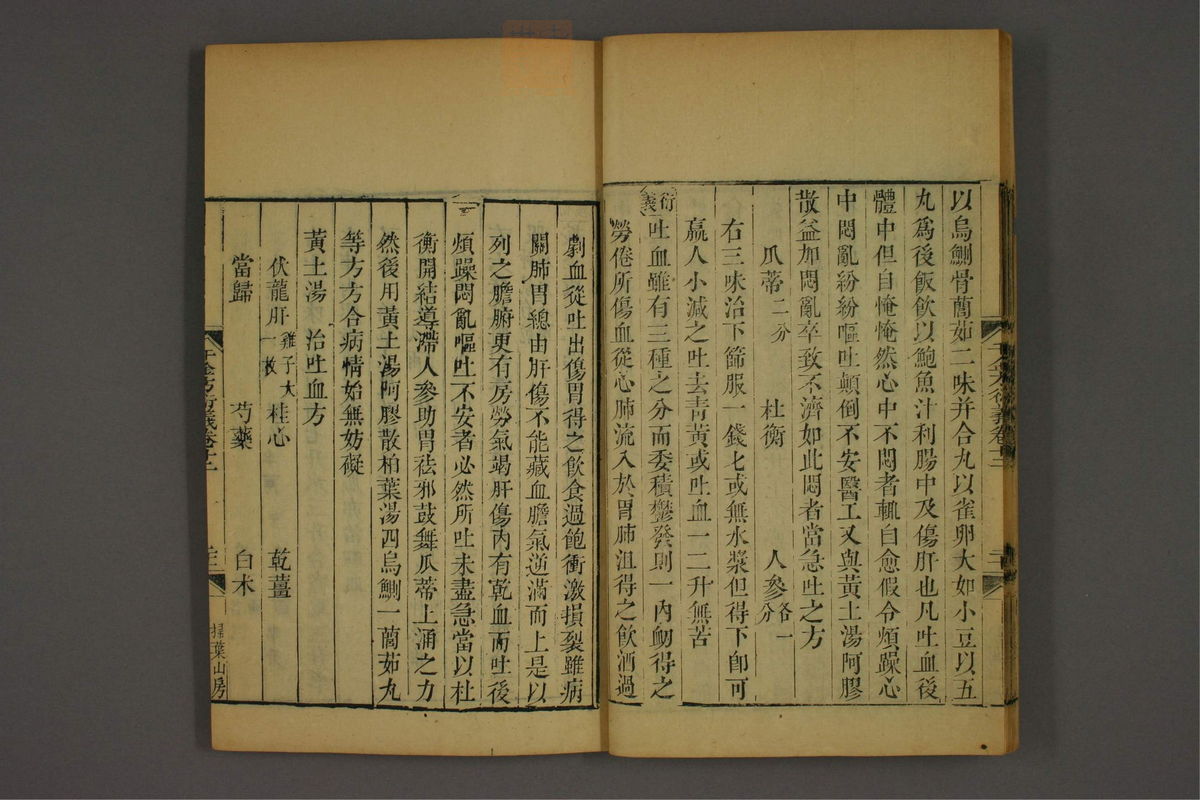 以烏鰂骨藘茹二味并合丸以雀卵大如小豆以五
丸爲後飯飲以鮑魚汁利腸中及傷肝也凡吐血後
體中但自惓惓然心中不悶者輒自愈假令煩躁心
中悶亂紛紛嘔吐顛倒不安醫工又與黃土湯阿膠
散益加悶亂卒致不濟如此悶者當急吐之方
瓜蒂二分 杜衡 人參各一分
右三味治下篩服一錢匕或無水漿但得下卽可
羸人小減之吐去青黃或吐血一二升無苦
衍義吐血雖有三種之分而委積鬱發則一內衂得之
勞倦所傷血從心肺流入於胃肺沮得之飲酒過
劇血從吐出傷胃得之飲食過飽衝激損裂雖病
關肺胃總由肝傷不能藏血膽氣逆滿而上是以
列之膽腑更有房勞氣竭肝傷內有乾血而吐後
煩躁悶亂嘔吐不安者必然所吐未盡急當以杜
衡開結導滯人參助胃祛邪鼓舞瓜蒂上涌之力
然後用黃土湯阿膠散柏葉湯四烏鰂一藘茹丸
等方方合病情始無妨礙
黃土湯 治吐血方
伏龍肝雞子大一枚 桂心 乾薑
當歸 芍藥 白朮
千金方衍義卷十二
掃葉山房